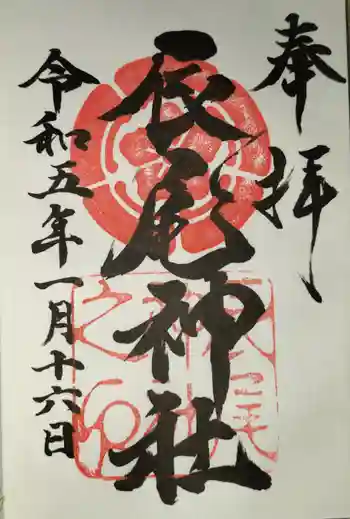 奉拝
長尾神社
令和五年一月十六日